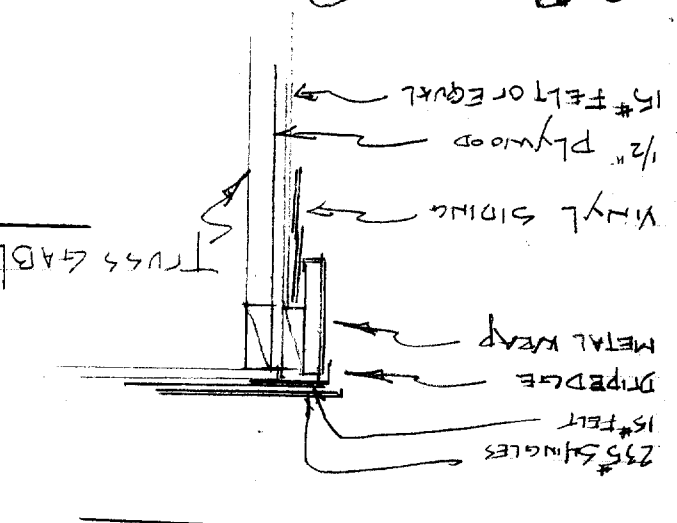 235# SHINGLES
15# FELT
DRIPEDGE
METAL WRAP
TRUSS GABL
VINYL SIDING
1/2" PLYWOOD
15# FELT OR EQUAL